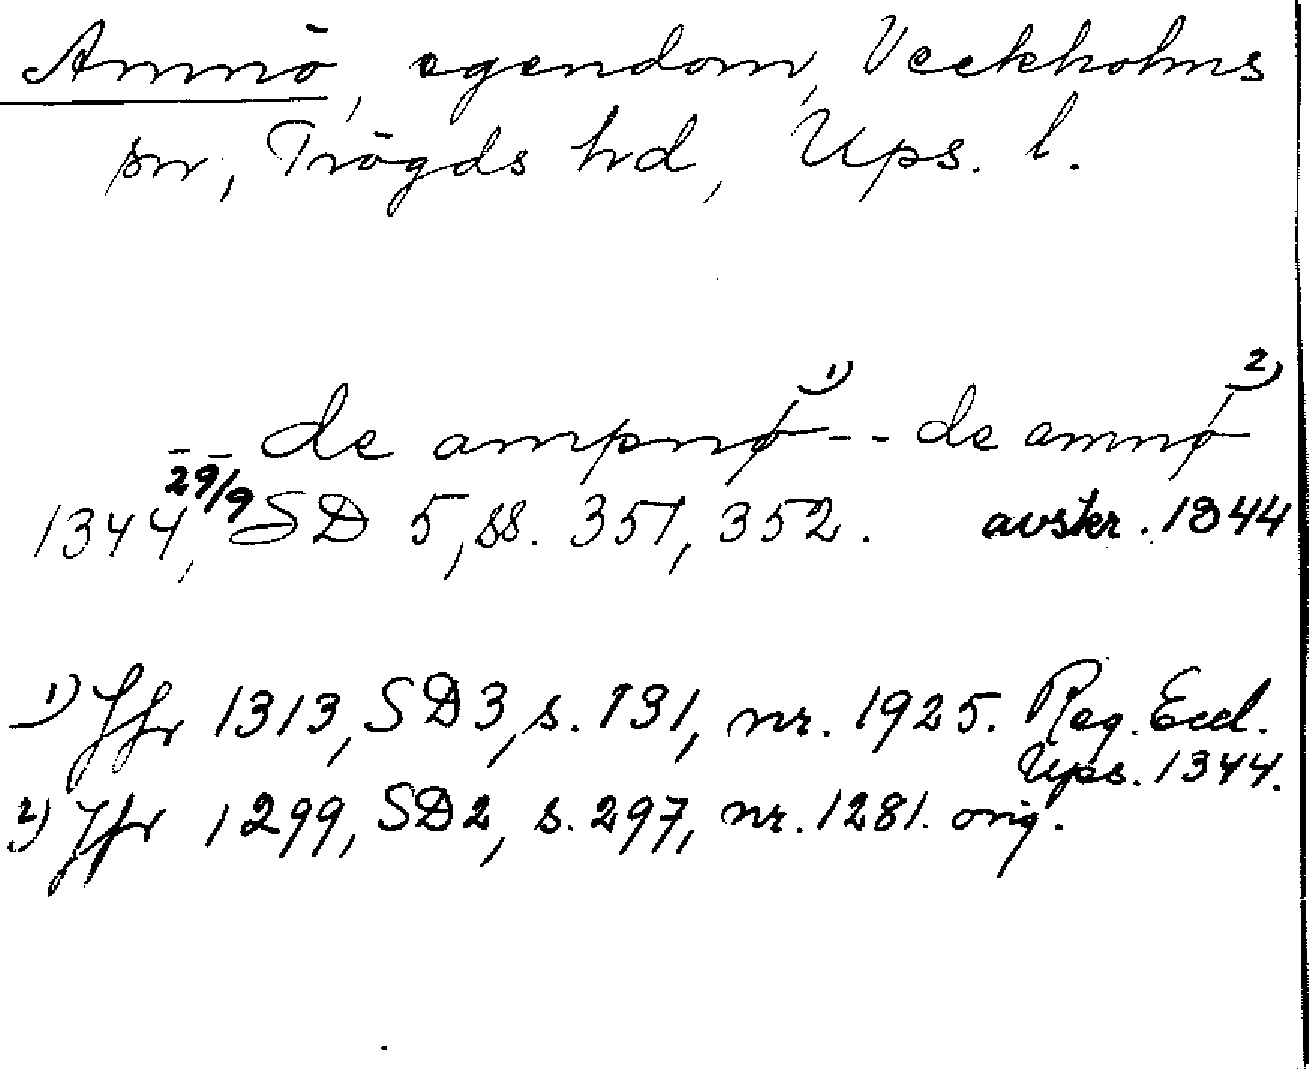 Amnö, egendom, Veckholms
sn, Trögds hd, Ups. l.
-- de ampnø 1) -- de amnø 2)
1344 29/9, SD 5, ss. 351, 352. avskr. 1344
1) Jfr 1313, SD 3, s. 131, nr. 1925. Reg. Eccl.
Ups. 1344.
2) Jfr 1299, SD 2, s. 297, nr. 1281. orig.